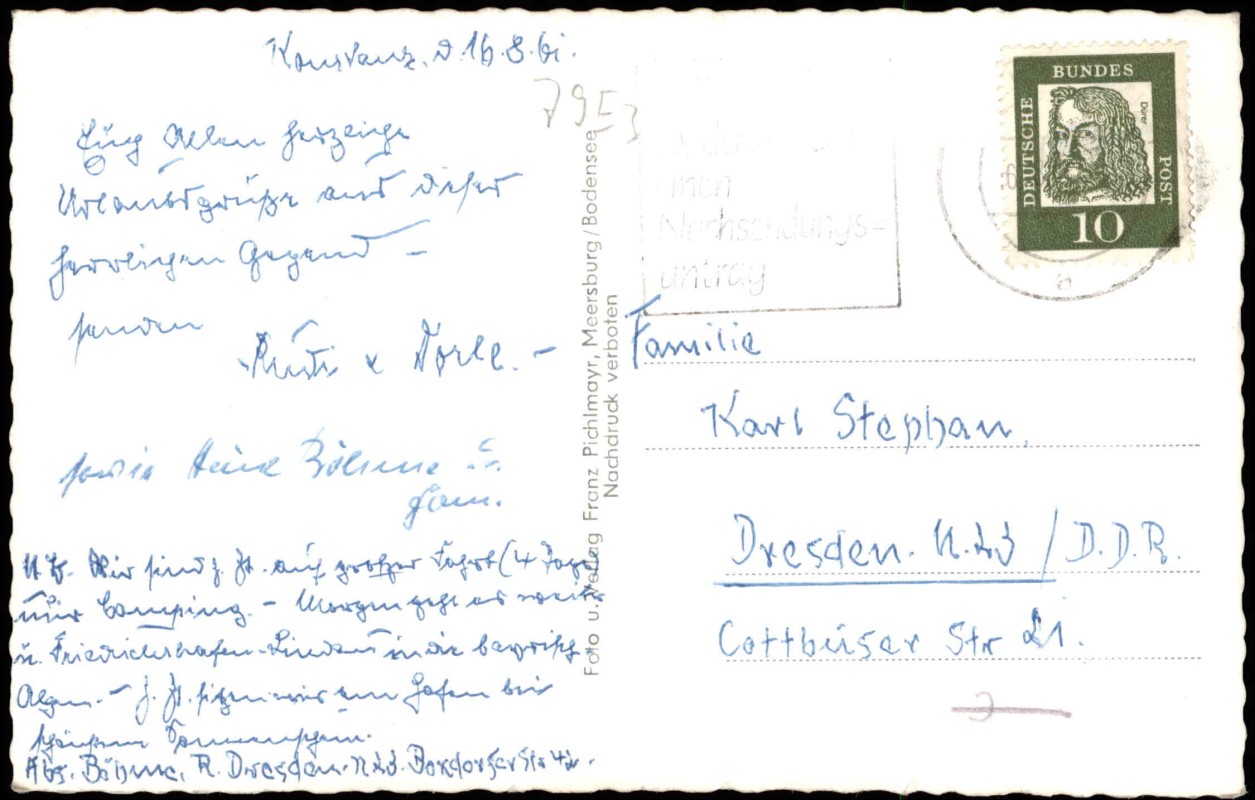 Konstanz, d. 16.8.61.
Euch Allen herzliche
Urlaubsgrüße aus dieser
herrlichen Gegend –
senden
Rudi u Dorle. –
sowie Heinz Böhme u.
Fam.
N.B. Wir sind z. Zt. auf großer Fahrt (4 Tage
nur Camping. – Morgen geht es weiter
n. Friedrichshafen-Lindau in die bayrisch.
Alpen. – Z. Zt. sitzen wir am Hafen bei
schönstem Sonnenschein.
Abs. Böhme, R. Dresden-N.
7953
Foto u. Verlag Franz Pichlmayr, Meersburg/Bodensee
Nachdruck verboten
Nachsendungs=
antrag
DEUTSCHE BUNDES POST
Dürer
10
Familie
Karl Stephan,
Dresden. N. / D.D.R.
Cottbuser Str 21.